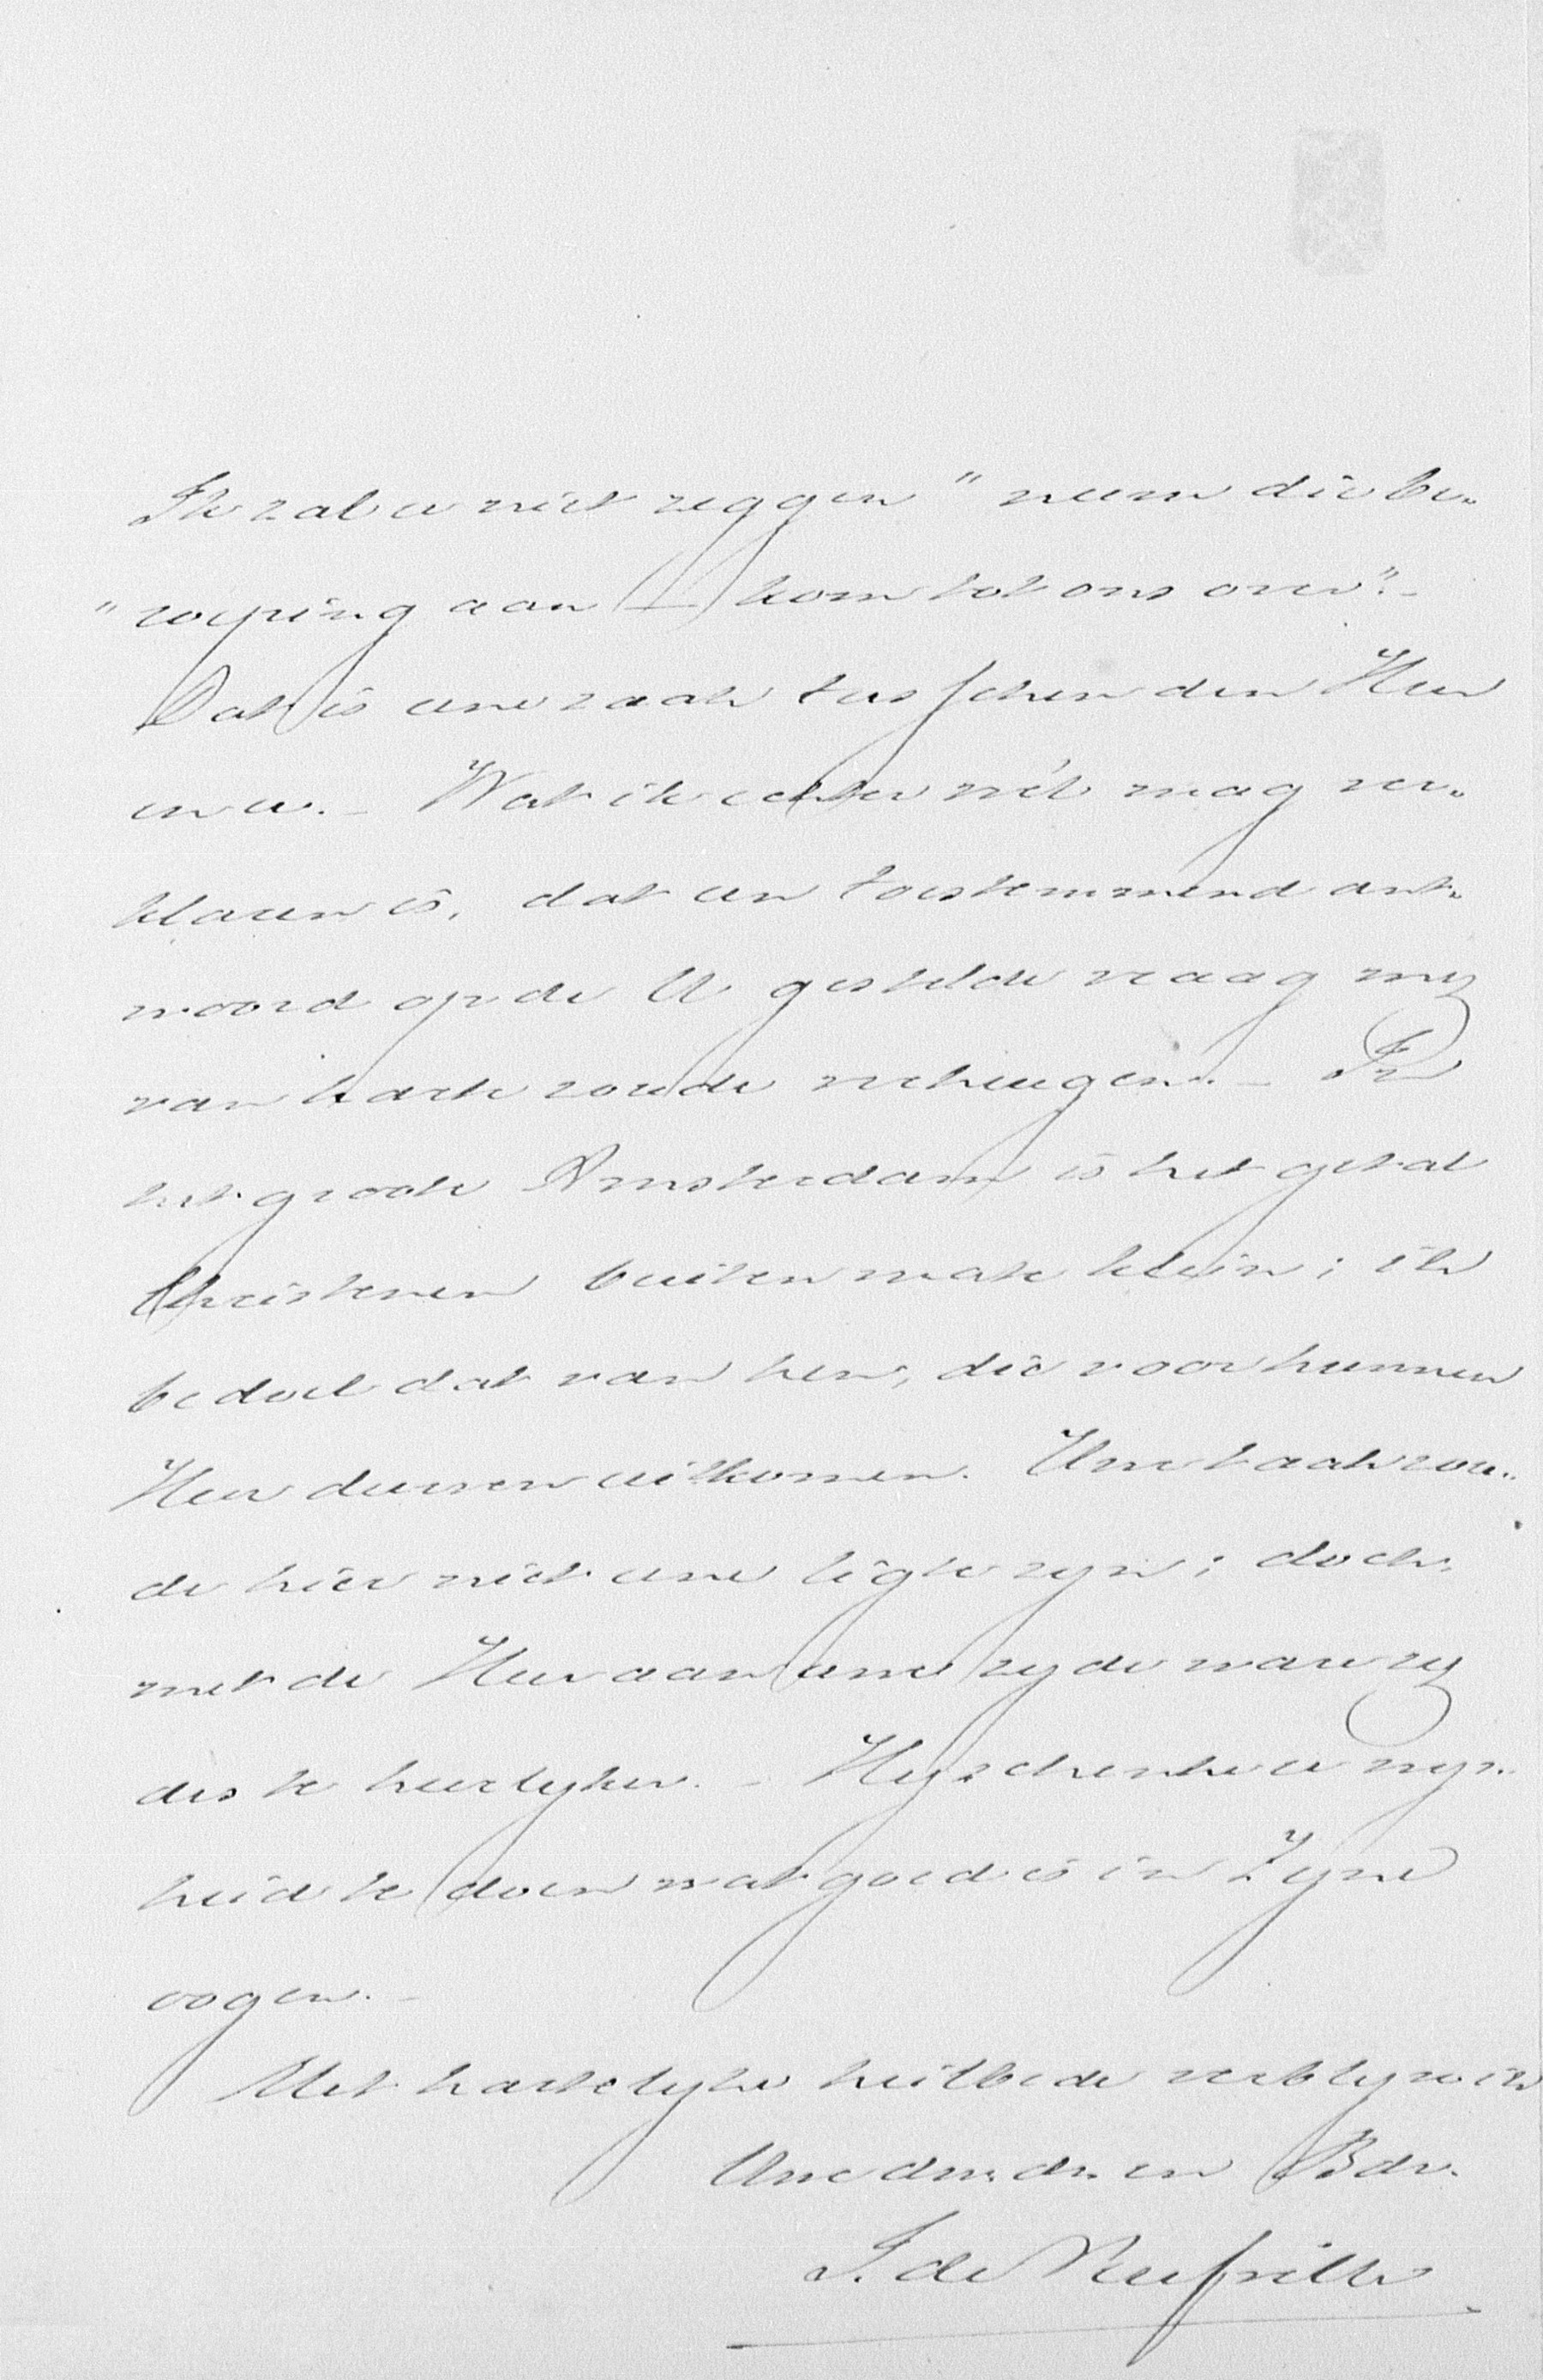 Ik zal u niet zeggen "neem die be-
"roeping aan — kom tot ons over".-
Dat is eene zaak tusschen den Heer
en u. - Wat ik echter wél mag ver-
klaren is, dat een toestemmend ant-
woord op de U gestelde vraag my
van harte zoude verheugen. - In
het groote Amsterdam is het getal
Christenen buitenmate klein; ik
bedoel dat van hen, die voor hunnen
Heer durven uitkomen. Uwe taak zou-
de hier niet eene ligte zyn; doch,
met de Heer aan uwe zyde ware zy
des te heerlyker. - Hy schenke u wys-
heid te doen wat goed is in Zyne
oogen. -
Met hartelyke heilbede verblyve ik
Uwe dw. dr. en Bdr.
J. de Neufville